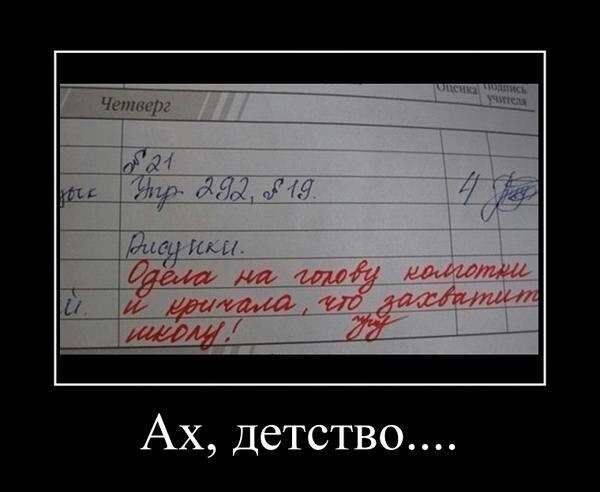 Оценка Подпись учителя
Четверг
§21
Упр 292, §19. 4
Рисунки.
Одела на голову колготки
й. и кричала, что захватит
школу!
Ах, детство....